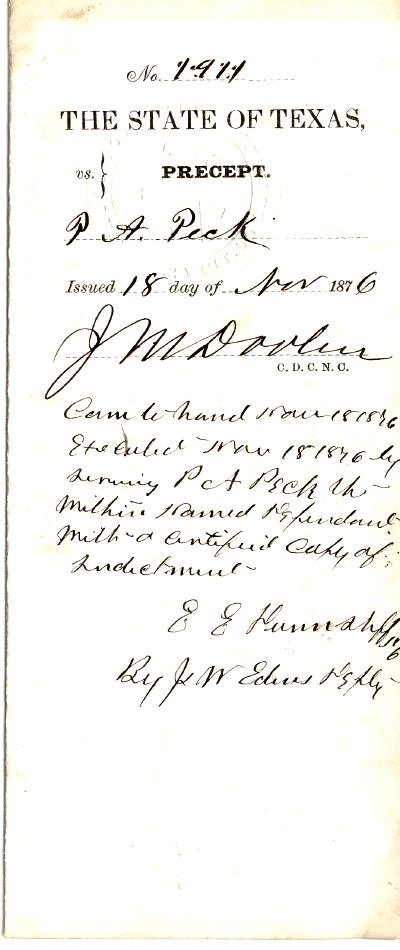 No. 1911
THE STATE OF TEXAS,
vs. } PRECEPT.
P A. Peck
Issued 18 day of Nov 1876
J M Doolen
C. D. C. N. C.
Came to hand Nov 18 1876
Executed Nov 18 1876 by
serving P A Peck the
within named Defendant
with a certified copy of
Indictment
E E
By W Depty